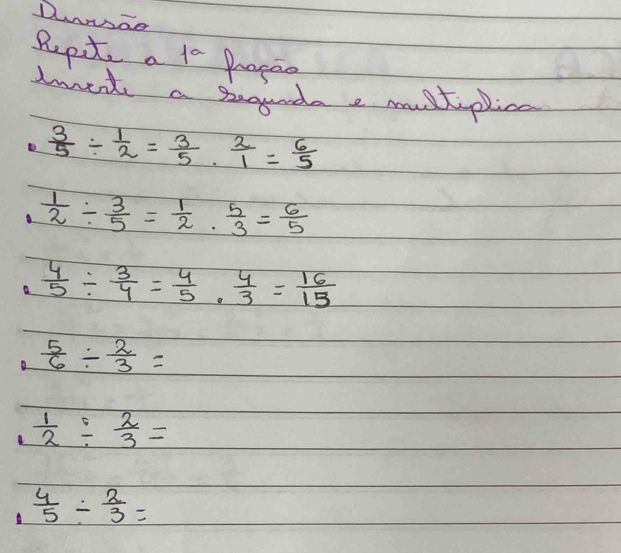 Divisão
Repete a 1ª fração
Inverte a segunda e multiplica
. 3/5 ÷ 1/2 = 3/5 . 2/1 = 6/5
. 1/2 ÷ 3/5 = 1/2 . 5/3 = 6/5
. 4/5 ÷ 3/4 = 4/5 . 4/3 = 16/15
. 5/6 ÷ 2/3 =
. 1/2 ÷ 2/3 =
. 4/5 ÷ 2/3 =